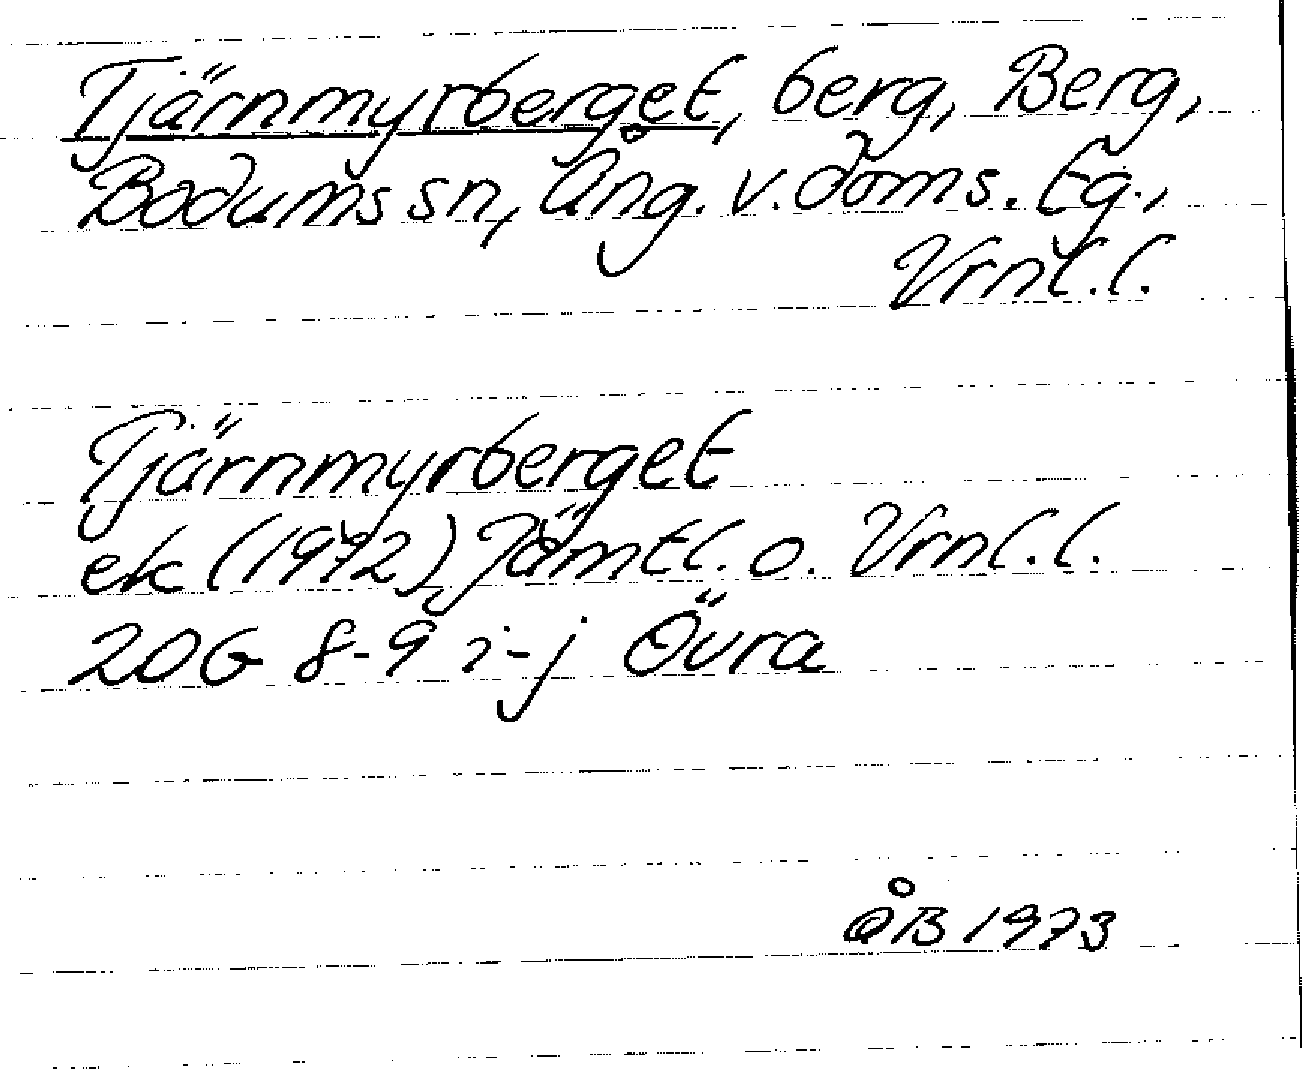 Tjärnmyrberget, berg, Berg,
Bodums sn, Ång. v. doms. Lg.,
Vrnl. l.
Tjärnmyrberget
ek (1972), Jämtl. o. Vrnl. l.
20G 8-9 i-j Övra
ÅB 1973